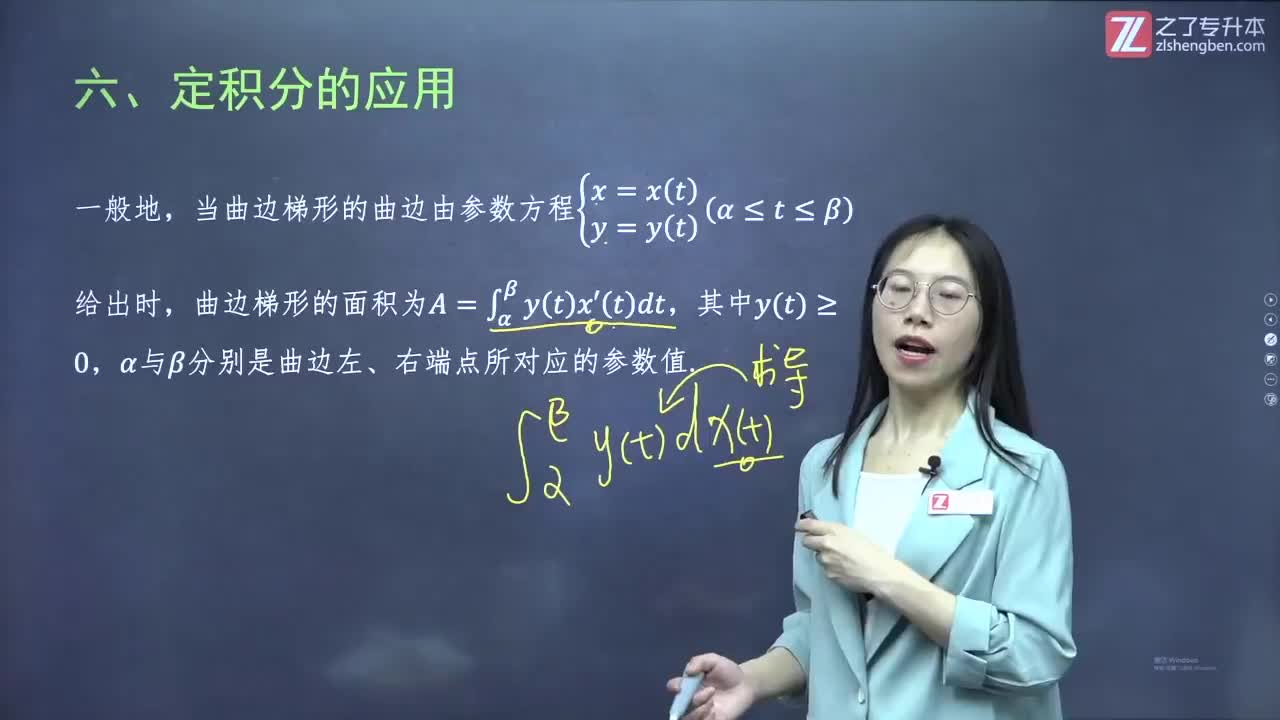 之了专升本
zlshengben.com
六、定积分的应用
一般地，当曲边梯形的曲边由参数方程{x = x(t) y = y(t) (α ≤ t ≤ β)
给出时，曲边梯形的面积为A = ∫_α^β y(t)x′(t)dt，其中y(t) ≥
0，α与β分别是曲边左、右端点所对应的参数值.
求导
∫_α^β y(t)dx(t)